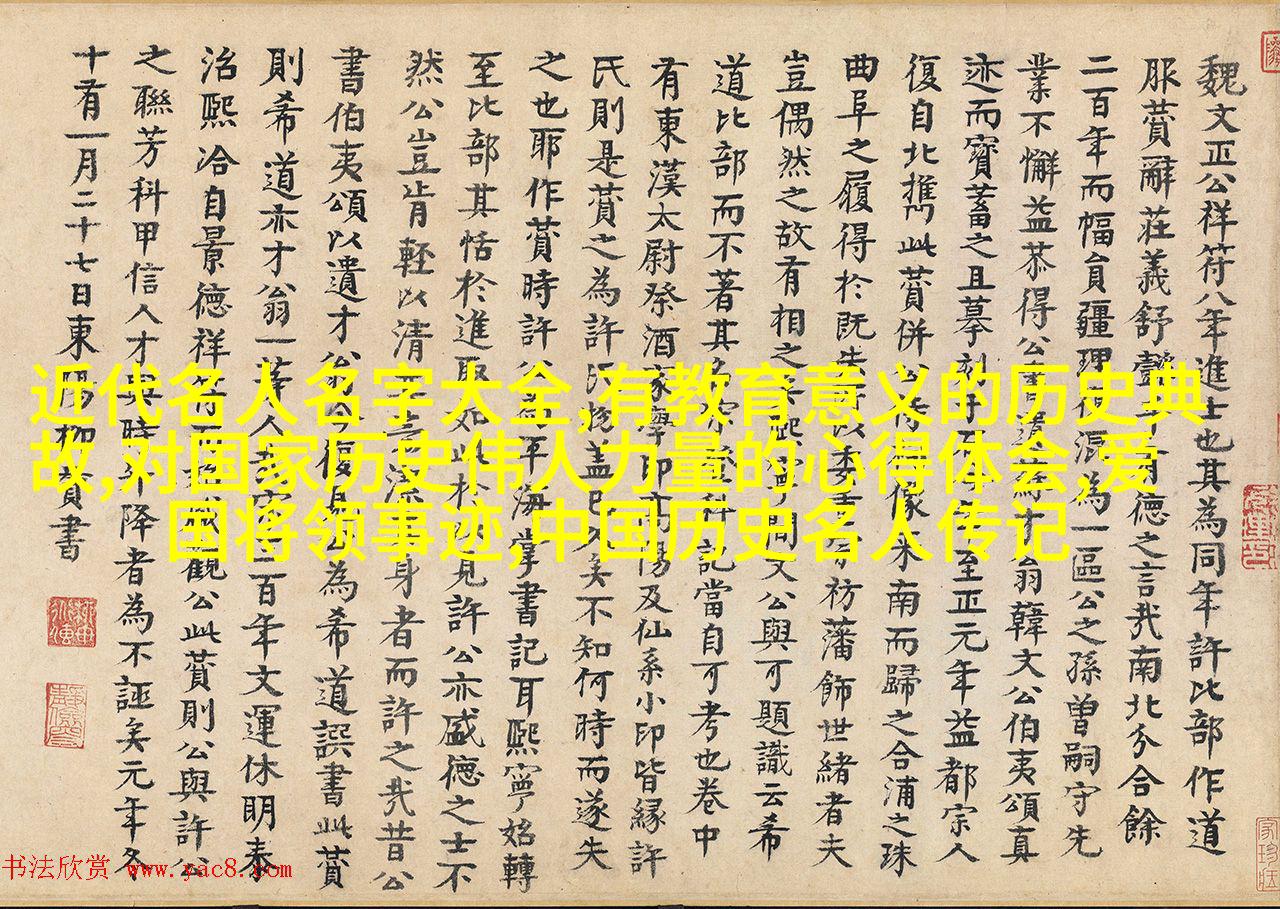 魏文正公祥符八年進士也其為同年許比部作道
服贊辭莊義舒韻有德之言哉南北分合餘
二百年而幅員疆理混為一區公之孫曾嗣守先
業不懈益恭得公書遺蘇才翁韓文公伯夷頌真
迹而寶蓄之且摹刻于石至正元年益都宗人
復自北攜此贊併公像來南而歸之合浦之珠
曲阜之履得於既失祊藩飾世緒者夫
豈偶然之故有相之熙寧間文公與可題識云希
道比部而不著其名登科記當自可考也卷中
有東漢太尉祭酒家學印高陽及仙系小印皆緣許
氏則是贊之為許氏物蓋已久矣不知何時而遂失
之也耶作贊時許公為平海掌書記耳熙寧始轉
至比部其恬於進取如此於以見許公亦盛德之士不
然公豈肯輕以清身者而許之哉昔公
書伯夷頌以遺才翁今復見公為希道譔書此贊
則希道亦才翁一等人百年文運休明泰
治熙洽自景德祥符觀公此贊則公與許公
之聯芳科甲信人才與時升降者為不誣矣元年冬
十有一月二十七日東陽柳貫書
近代名人名字大全,有教育意义的历史典
故,对国家历史伟人力量的心得体会,爱
国将领事迹,中国历史名人传记
书法欣赏 www.yac8.com